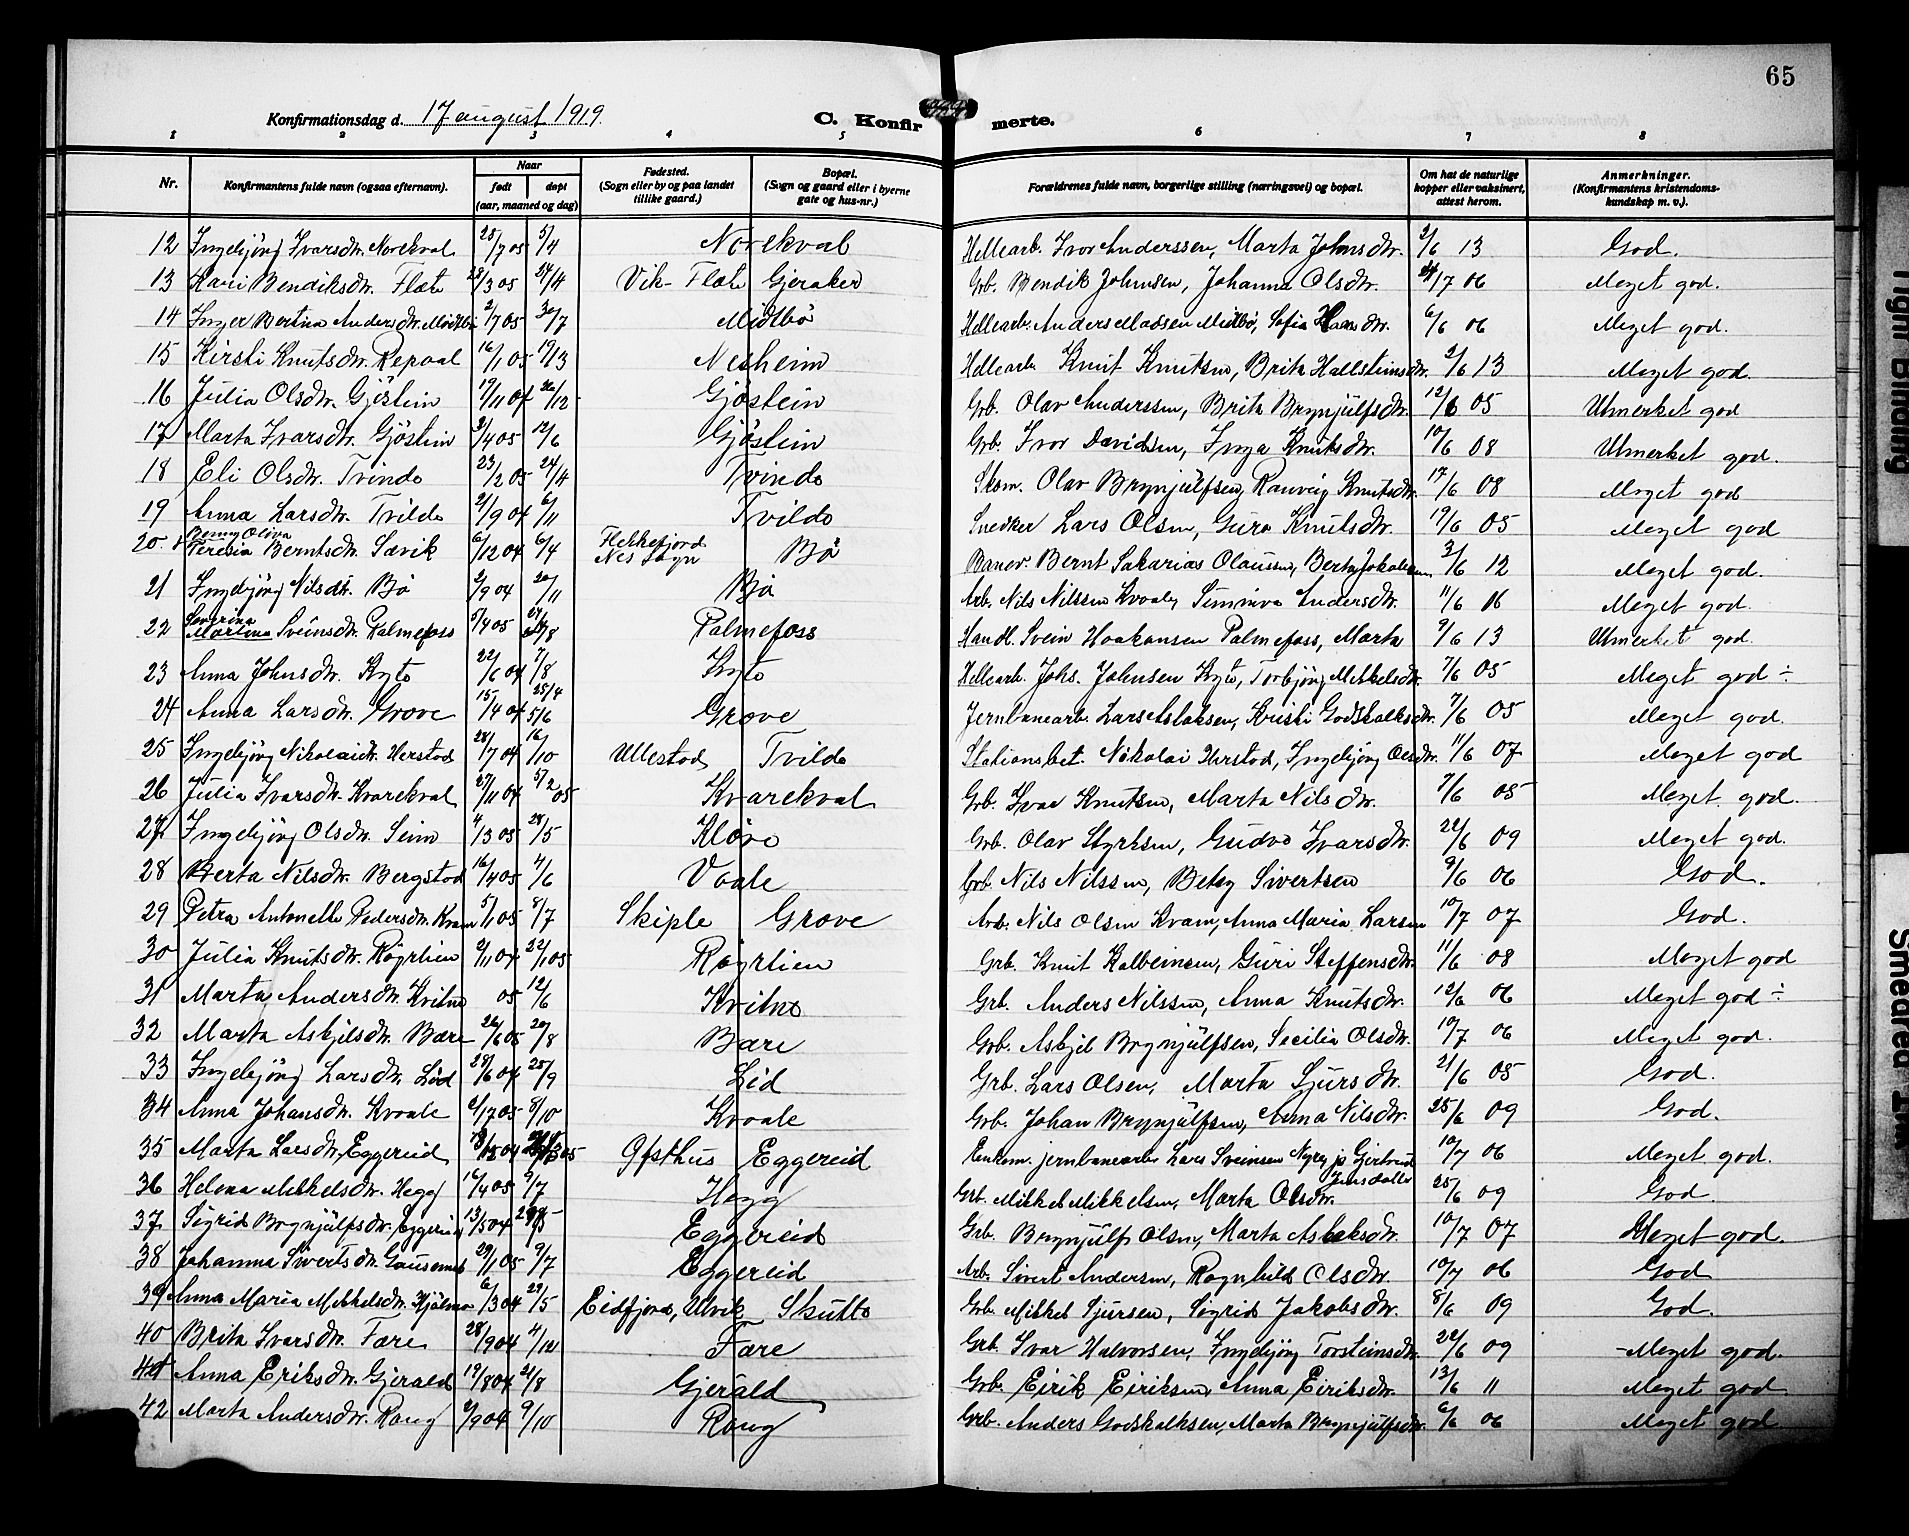 65
Konfirmationsdag d. 17 august 1919.
C. Konfirmerte.
1 2 3 4 5 6 7 8
Nr. Konfirmantens fulde navn (ogsaa efternavn). Naar født døpt (aar, maaned og dag) Fødested. (Sogn eller by og paa landet tillike gaard.) Bopæl. (Sogn og gaard eller i byerne gate og hus-nr.) Forældrenes fulde navn, borgerlige stilling (næringsvei) og bopæl. Om hat de naturlige kopper eller vaksinert, attest herom. Anmerkninger. (Konfirmantens kristendoms-kundskap m. v.).
12 Ingebjörg Ivarsdtr. Norekval 25/7 05 5/4 Norekval Hellearb. Ivor Anderssen, Marta Johnsdtr. 2/6 13 God.
13 Kari Bendiksdtr. Flæte 28/3 05 24/4 Vik- Flæte Gjeraker Grb. Bendik Johnsen, Johanna Olsdtr. 24/7 06 Meget god.
14 Inger Bertina Andersdtr. Midtbö 2/7 05 30/7 Midtbö Hellearb. Anders Madsen Midtbö, Sofia Hansdtr. 6/6 06 Meget god.
15 Kirsti Knutsdtr. Repaal 16/1 05 19/13 Nesheim Hellearb. Knut Knutsen, Brita Hallsteinsdtr. 2/6 13 Meget god.
16 Julia Olsdtr. Gjöstein 17/11 04 26/12 Gjöstein Grb. Olav Anderssen, Brita Brynjulfsdtr. 12/6 05 Utmerket god
17 Marta Ivarsdtr. Gjöstein 3/4 05 12/6 Gjöstein Grb. Ivor Davidsen, Inga Knutsdtr. 10/6 08 Utmerket god.
18 Eli Olsdtr. Tvinde 23/2 05 24/4 Tvinde Skom. Olav Brynjulfsen, Ranveig Knutsdtr. 17/6 08 Meget god
19 Anna Larsdtr. Tvilde 21/9 04 6/11 Tvilde Snedker Lars Olsen, Guro Knutsdtr. 19/6 05 Meget god
20 Benny Oliva Teresia Berntsdtr. Sævik 6/12 04 6/4 Flekkefjord Nes Sogn Bö Banev. Bernt Sakarias Olaussen, Berta Jakobsen 3/6 12 Meget god.
21 Ingebjörg Nilsdtr. Bö 2/9 04 20/11 Bö Arb. Nils Nilssen Kvaale, Sunniva Andersdtr. 11/6 16 Meget god.
22 Severina Martina Sveinsdtr. Palmefoss 5/4 05 27/8 Palmefoss Handl. Svein Haakonsen Palmefoss, Marta 9/6 13 Utmerket god.
23 Anna Johnsdtr. Kyte 22/6 04 7/8 Kyte Hellearb. Johs. Johnsen Kyte, Torbjörg Mikkelsdtr. 7/6 05 Meget god ÷
24 Anna Larsdtr. Grove 15/4 04 25/4 5/6 Grove Jernbanearb. Lars Aslaksen, Kristi Godskalksdtr. 7/6 05 Meget god.
25 Ingebjörg Nikolaidtr. Herstad 28/7 04 16/10 Ullestad Tvilde Stationsbet. Nikolai Herstad, Ingebjörg Olsdtr. 11/6 07 Meget god
26 Julia Ivarsdtr. Kvarekval 27/11 04 5/2 05 Kvarekval Grb. Ivar Knutsen, Marta Nilsdtr. 7/6 05 Meget god.
27 Ingebjörg Olsdtr. Seim 4/3 05 28/5 Klöve Grb. Olav Styrksen, Gudve Ivarsdtr. 22/6 09 Meget god.
28 Berta Nilsdtr. Bergstad 16/4 05 4/6 Vaale Grb. Nils Nilssen, Betsy Sivertsen 9/6 06 God.
29 Petra Antonette Pedersdtr. Kvam 5/1 05 8/7 Skiple Grove Arb. Nils Olsen Kvam, Anna Maria Larsen 10/7 07 God.
30 Julia Knutsdtr. Røgrlien 2/11 04 22/1 05 Røgrlien Grb. Knut Kolbeinsen, Guri Steffensdtr. 11/6 08 Meget god
31 Marta Andersdtr. Kvitno 05 12/6 Kvitno Grb. Anders Nilssen, Anna Knutsdtr. 12/6 06 Meget god ÷
32 Marta Askjelsdtr. Bære 26/6 05 20/8 Bære Grb. Askjel Brynjulfsen, Secilia Olsdtr. 10/7 06 Meget god.
33 Ingebjörg Larsdtr. Lid 28/6 04 25/9 Lid Grb. Lars Olsen, Marta Sjursdtr. 21/6 05 God.
34 Anna Johansdtr. Kvaale 6/7 05 8/10 Kvaale Grb. Johan Brynjulfsen, Anna Nilsdtr. 25/6 09 God.
35 Marta Larsdtr. Eggereid Ofsthus Eggereid Enkem. jernbanearb. Lars Sveinsen Nyre, 10/7 06 Meget god.
36 Helena Mikkelsdtr. Hegg 16/4 05 9/7 Hegg Grb. Mikkel Mikkelsen, Marta Olsdtr. 25/6 09 God.
37 Sigrid Brynjulfsdtr. Eggereid 13/5 04 Eggereid Grb. Brynjulf Olsen, Marta Aslaksdtr. 10/7 07 Meget god.
38 Johanna Sivertsdtr. 29/1 05 9/7 Eggereid Arb. Sivert Andersen, Ragnhild Olsdtr. 10/7 06 God
39 Anna Maria Mikkelsdtr. Hjälmo 6/3 04 29/5 Eidfjord, Ulvik Skutle Grb. Mikkel Sjursen, Sigrid Jakobsdtr. 8/6 09 God.
40 Brita Ivarsdtr. Fære 28/9 04 4/12 Fære Grb. Ivar Halvorsen, Ingebjörg Torsteinsdtr. 22/6 09 Meget god.
41 Anna Eriksdtr. Gjerald 19/8 04 21/8 Gjerald Grb. Eirik Eiriksen, Anna Eiriksdtr. 13/6 11 Meget god
42 Marta Andersdtr. Rong 2/9 04 9/10 Rong Grb. Anders Godskalksen, Marta Brynjulfsdtr. 6/6 06 Meget god
Tight Binding
Smeared Ink